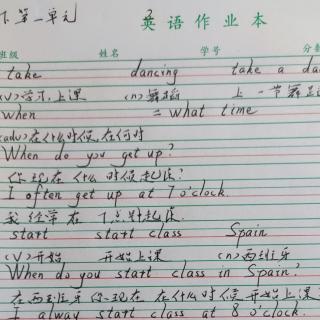 下第一单元
英语作业本
班级 姓名 学号 分数
take dancing take a da
(v)学习,上课 (n)舞蹈 上一节舞蹈
when = what time
(adv)在什么时候,在何时
When do you get up?
你现在什么时候起床?
I often get up at 7 o'clock.
我经常在7点钟起床.
start start class Spain
(v)开始 开始上课 (n)西班牙
When do you start class in Spain?
在西班牙你现在在什么时候开始上课
I alway start class at 8 o'clock.